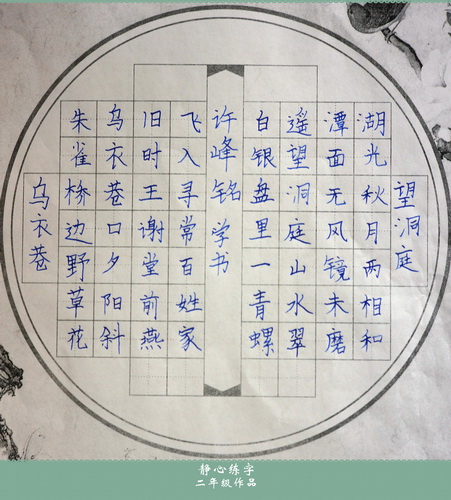 望洞庭
湖光秋月两相和
潭面无风镜未磨
遥望洞庭山水翠
白银盘里一青螺
乌衣巷
朱雀桥边野草花
乌衣巷口夕阳斜
旧时王谢堂前燕
飞入寻常百姓家
许峰铭学书
静心练字
二年级作品